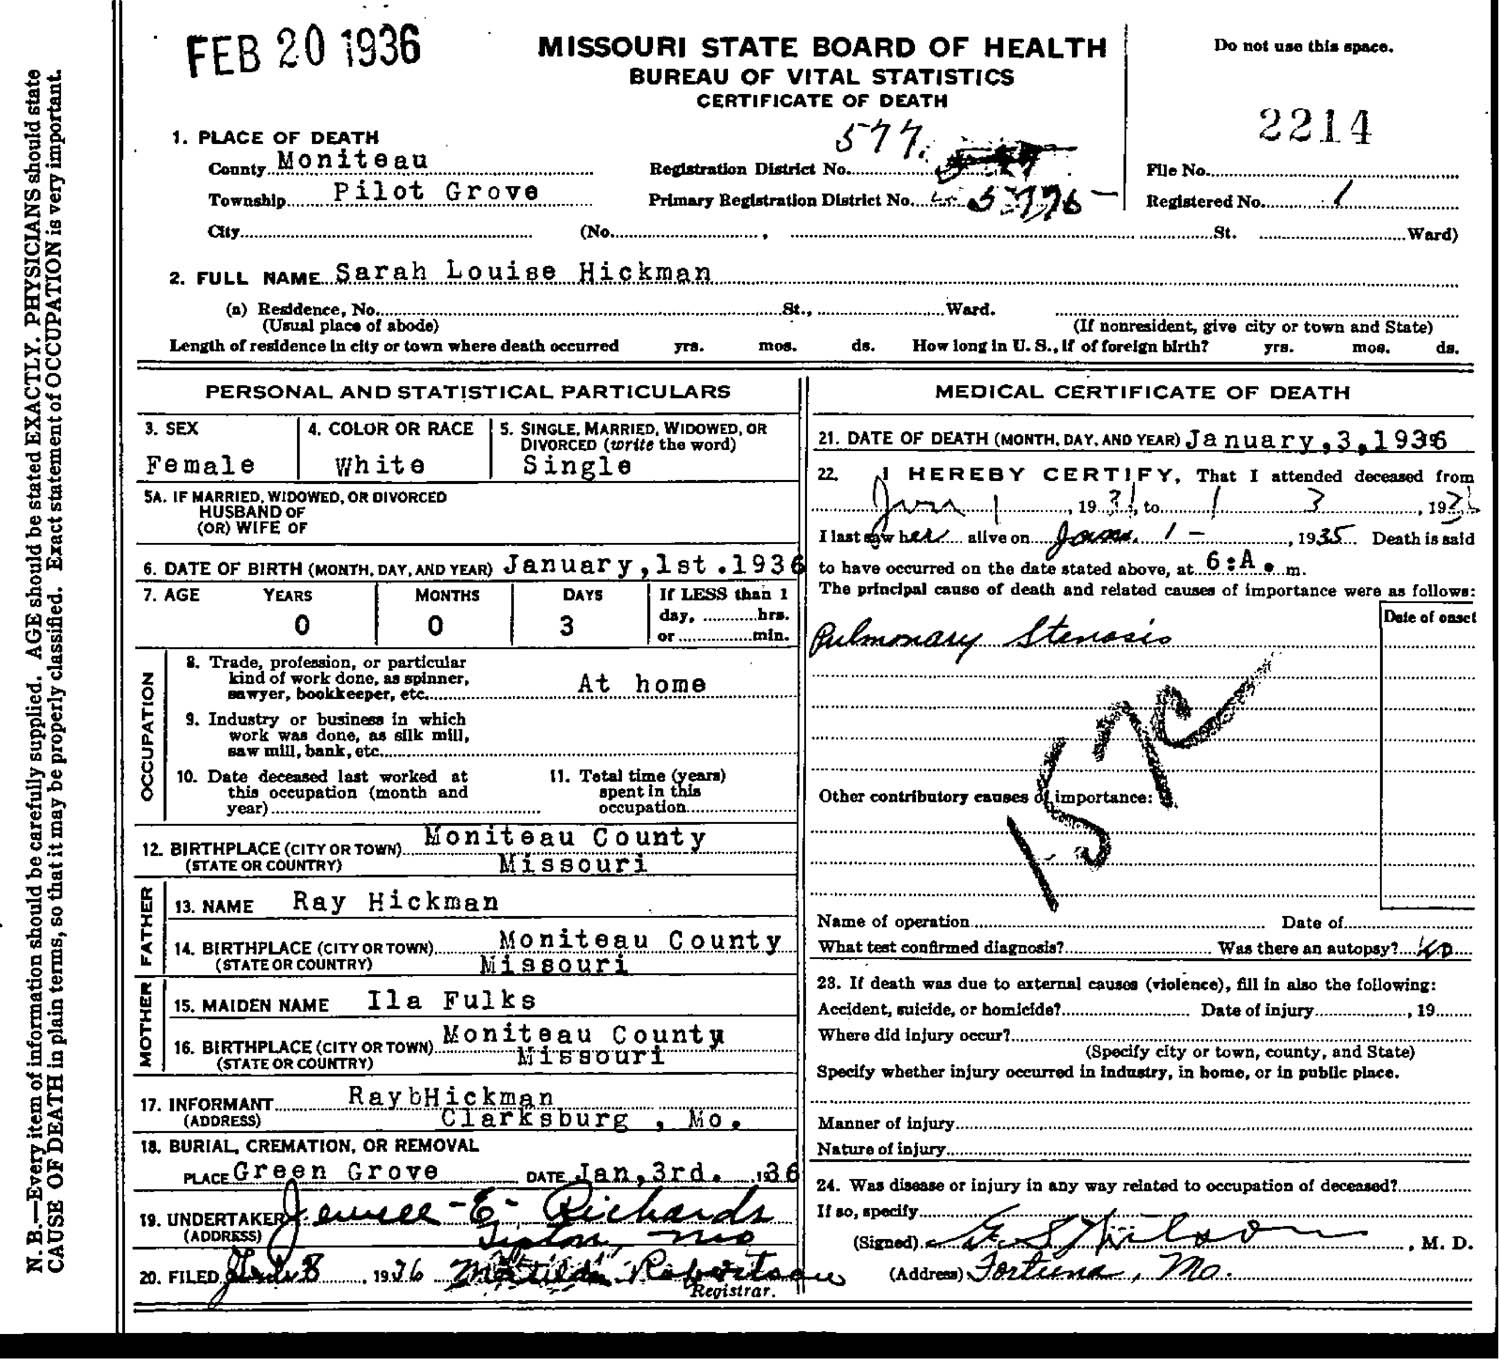 FEB 20 1936
MISSOURI STATE BOARD OF HEALTH
BUREAU OF VITAL STATISTICS
CERTIFICATE OF DEATH
Do not use this space.
2214
1. PLACE OF DEATH
577.
County Moniteau Registration District No. File No.
Township Pilot Grove Primary Registration District No. 5776 Registered No. 1
City (No. , St. Ward)
2. FULL NAME Sarah Louise Hickman
(a) Residence, No. St., Ward.
(Usual place of abode) (If nonresident, give city or town and State)
Length of residence in city or town where death occurred yrs. mos. ds. How long in U. S., if of foreign birth? yrs. mos. ds.
PERSONAL AND STATISTICAL PARTICULARS
3. SEX 4. COLOR OR RACE 5. SINGLE, MARRIED, WIDOWED, OR
DIVORCED (write the word)
Female White Single
5A. IF MARRIED, WIDOWED, OR DIVORCED
HUSBAND OF
(OR) WIFE OF
6. DATE OF BIRTH (MONTH, DAY, AND YEAR) January, 1st. 1936
7. AGE YEARS MONTHS DAYS If LESS than 1
day, hrs.
0 0 3 or min.
OCCUPATION
8. Trade, profession, or particular
kind of work done, as spinner,
sawyer, bookkeeper, etc. At home
9. Industry or business in which
work was done, as silk mill,
saw mill, bank, etc.
10. Date deceased last worked at
this occupation (month and
year)
11. Total time (years)
spent in this
occupation
12. BIRTHPLACE (CITY OR TOWN) Moniteau County
(STATE OR COUNTRY) Missouri
FATHER
13. NAME Ray Hickman
14. BIRTHPLACE (CITY OR TOWN) Moniteau County
(STATE OR COUNTRY) Missouri
MOTHER
15. MAIDEN NAME Ila Fulks
16. BIRTHPLACE (CITY OR TOWN) Moniteau County
(STATE OR COUNTRY) Missouri
17. INFORMANT RaybHickman
(ADDRESS) Clarksburg , Mo.
18. BURIAL, CREMATION, OR REMOVAL
PLACE Green Grove DATE Jan, 3rd. 1936
19. UNDERTAKER Jewell E. Richards
(ADDRESS) Tipton, Mo
20. FILED 8, 1936 Matilda Robertson
Registrar.
MEDICAL CERTIFICATE OF DEATH
21. DATE OF DEATH (MONTH, DAY, AND YEAR) January, 3, 1936
22. I HEREBY CERTIFY, That I attended deceased from
1, 19 , to 1 3, 19
I last saw her alive on 1 - , 1935 Death is said
to have occurred on the date stated above, at 6:A. m.
The principal cause of death and related causes of importance were as follows:
Date of onset
Pulmonary Stenosis
157C
Other contributory causes of importance:
Name of operation Date of
What test confirmed diagnosis? Was there an autopsy? No
23. If death was due to external causes (violence), fill in also the following:
Accident, suicide, or homicide? Date of injury , 19
Where did injury occur?
(Specify city or town, county, and State)
Specify whether injury occurred in industry, in home, or in public place.
Manner of injury
Nature of injury
24. Was disease or injury in any way related to occupation of deceased?
If so, specify
(Signed) Wilson , M. D.
(Address) Fortuna, Mo.
N. B.—Every item of information should be carefully supplied. AGE should be stated EXACTLY. PHYSICIANS should state
CAUSE OF DEATH in plain terms, so that it may be properly classified. Exact statement of OCCUPATION is very important.